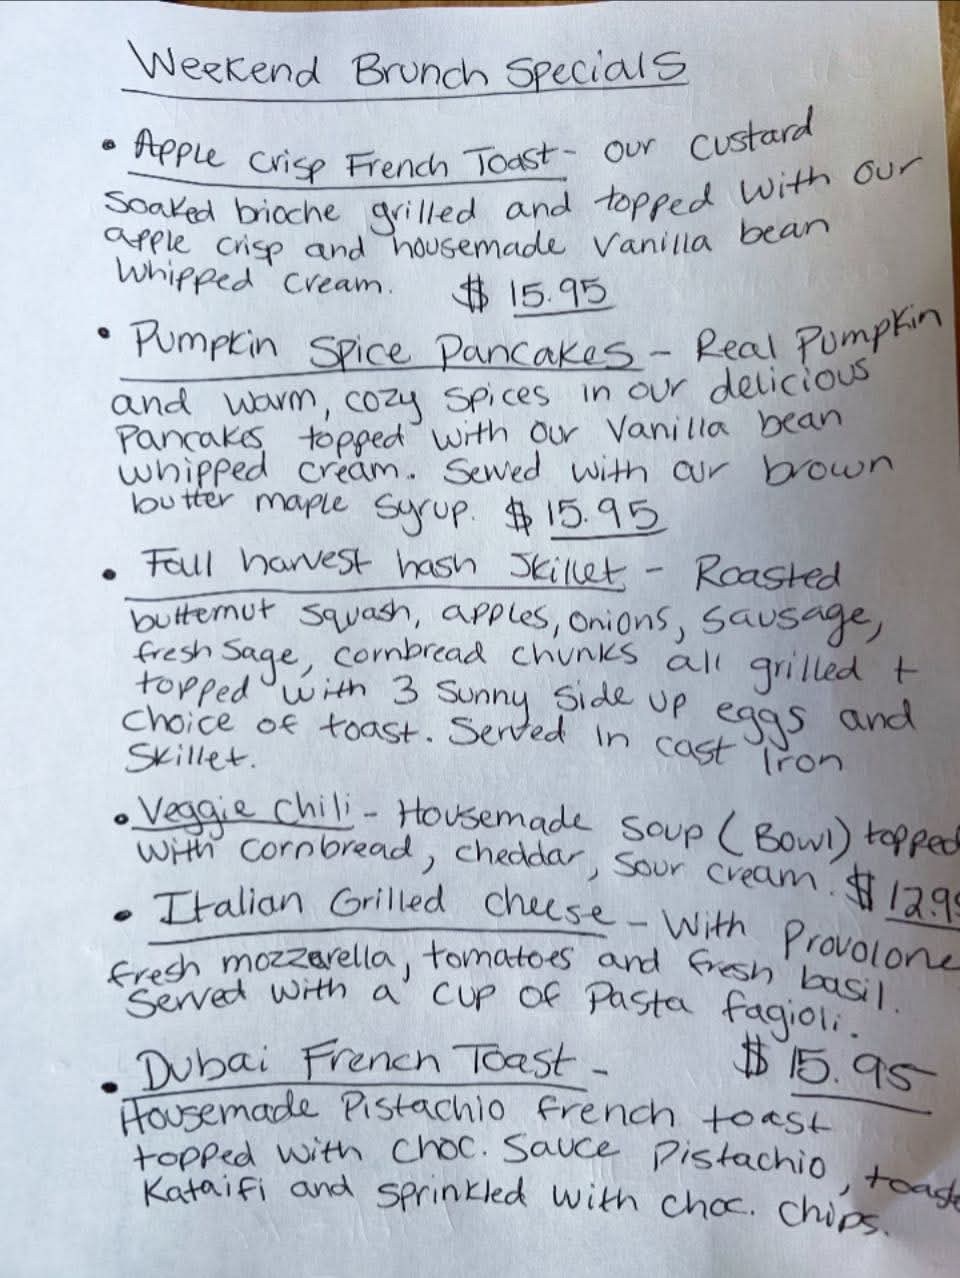 Weekend Brunch Specials
• Apple Crisp French Toast - our custard
soaked brioche grilled and topped with our
apple crisp and housemade vanilla bean
whipped cream. $ 15.95
• Pumpkin Spice Pancakes - Real Pumpkin
and warm, cozy spices in our delicious
pancakes topped with our vanilla bean
whipped cream. Served with our brown
butter maple syrup. $ 15.95
• Fall harvest hash Skillet - Roasted
butternut squash, apples, onions, sausage,
fresh sage, cornbread chunks all grilled +
topped with 3 sunny side up eggs and
choice of toast. Served in cast iron
Skillet.
• Veggie Chili - Housemade soup (Bowl) topped
with cornbread, cheddar, sour cream. $ 12.9
• Italian Grilled Cheese - With Provolone
fresh mozzarella, tomatoes and fresh basil.
Served with a cup of Pasta fagioli.
$ 15.95
• Dubai French Toast -
Housemade Pistachio french toast
topped with choc. sauce pistachio, toast
Kataifi and sprinkled with choc. chips.